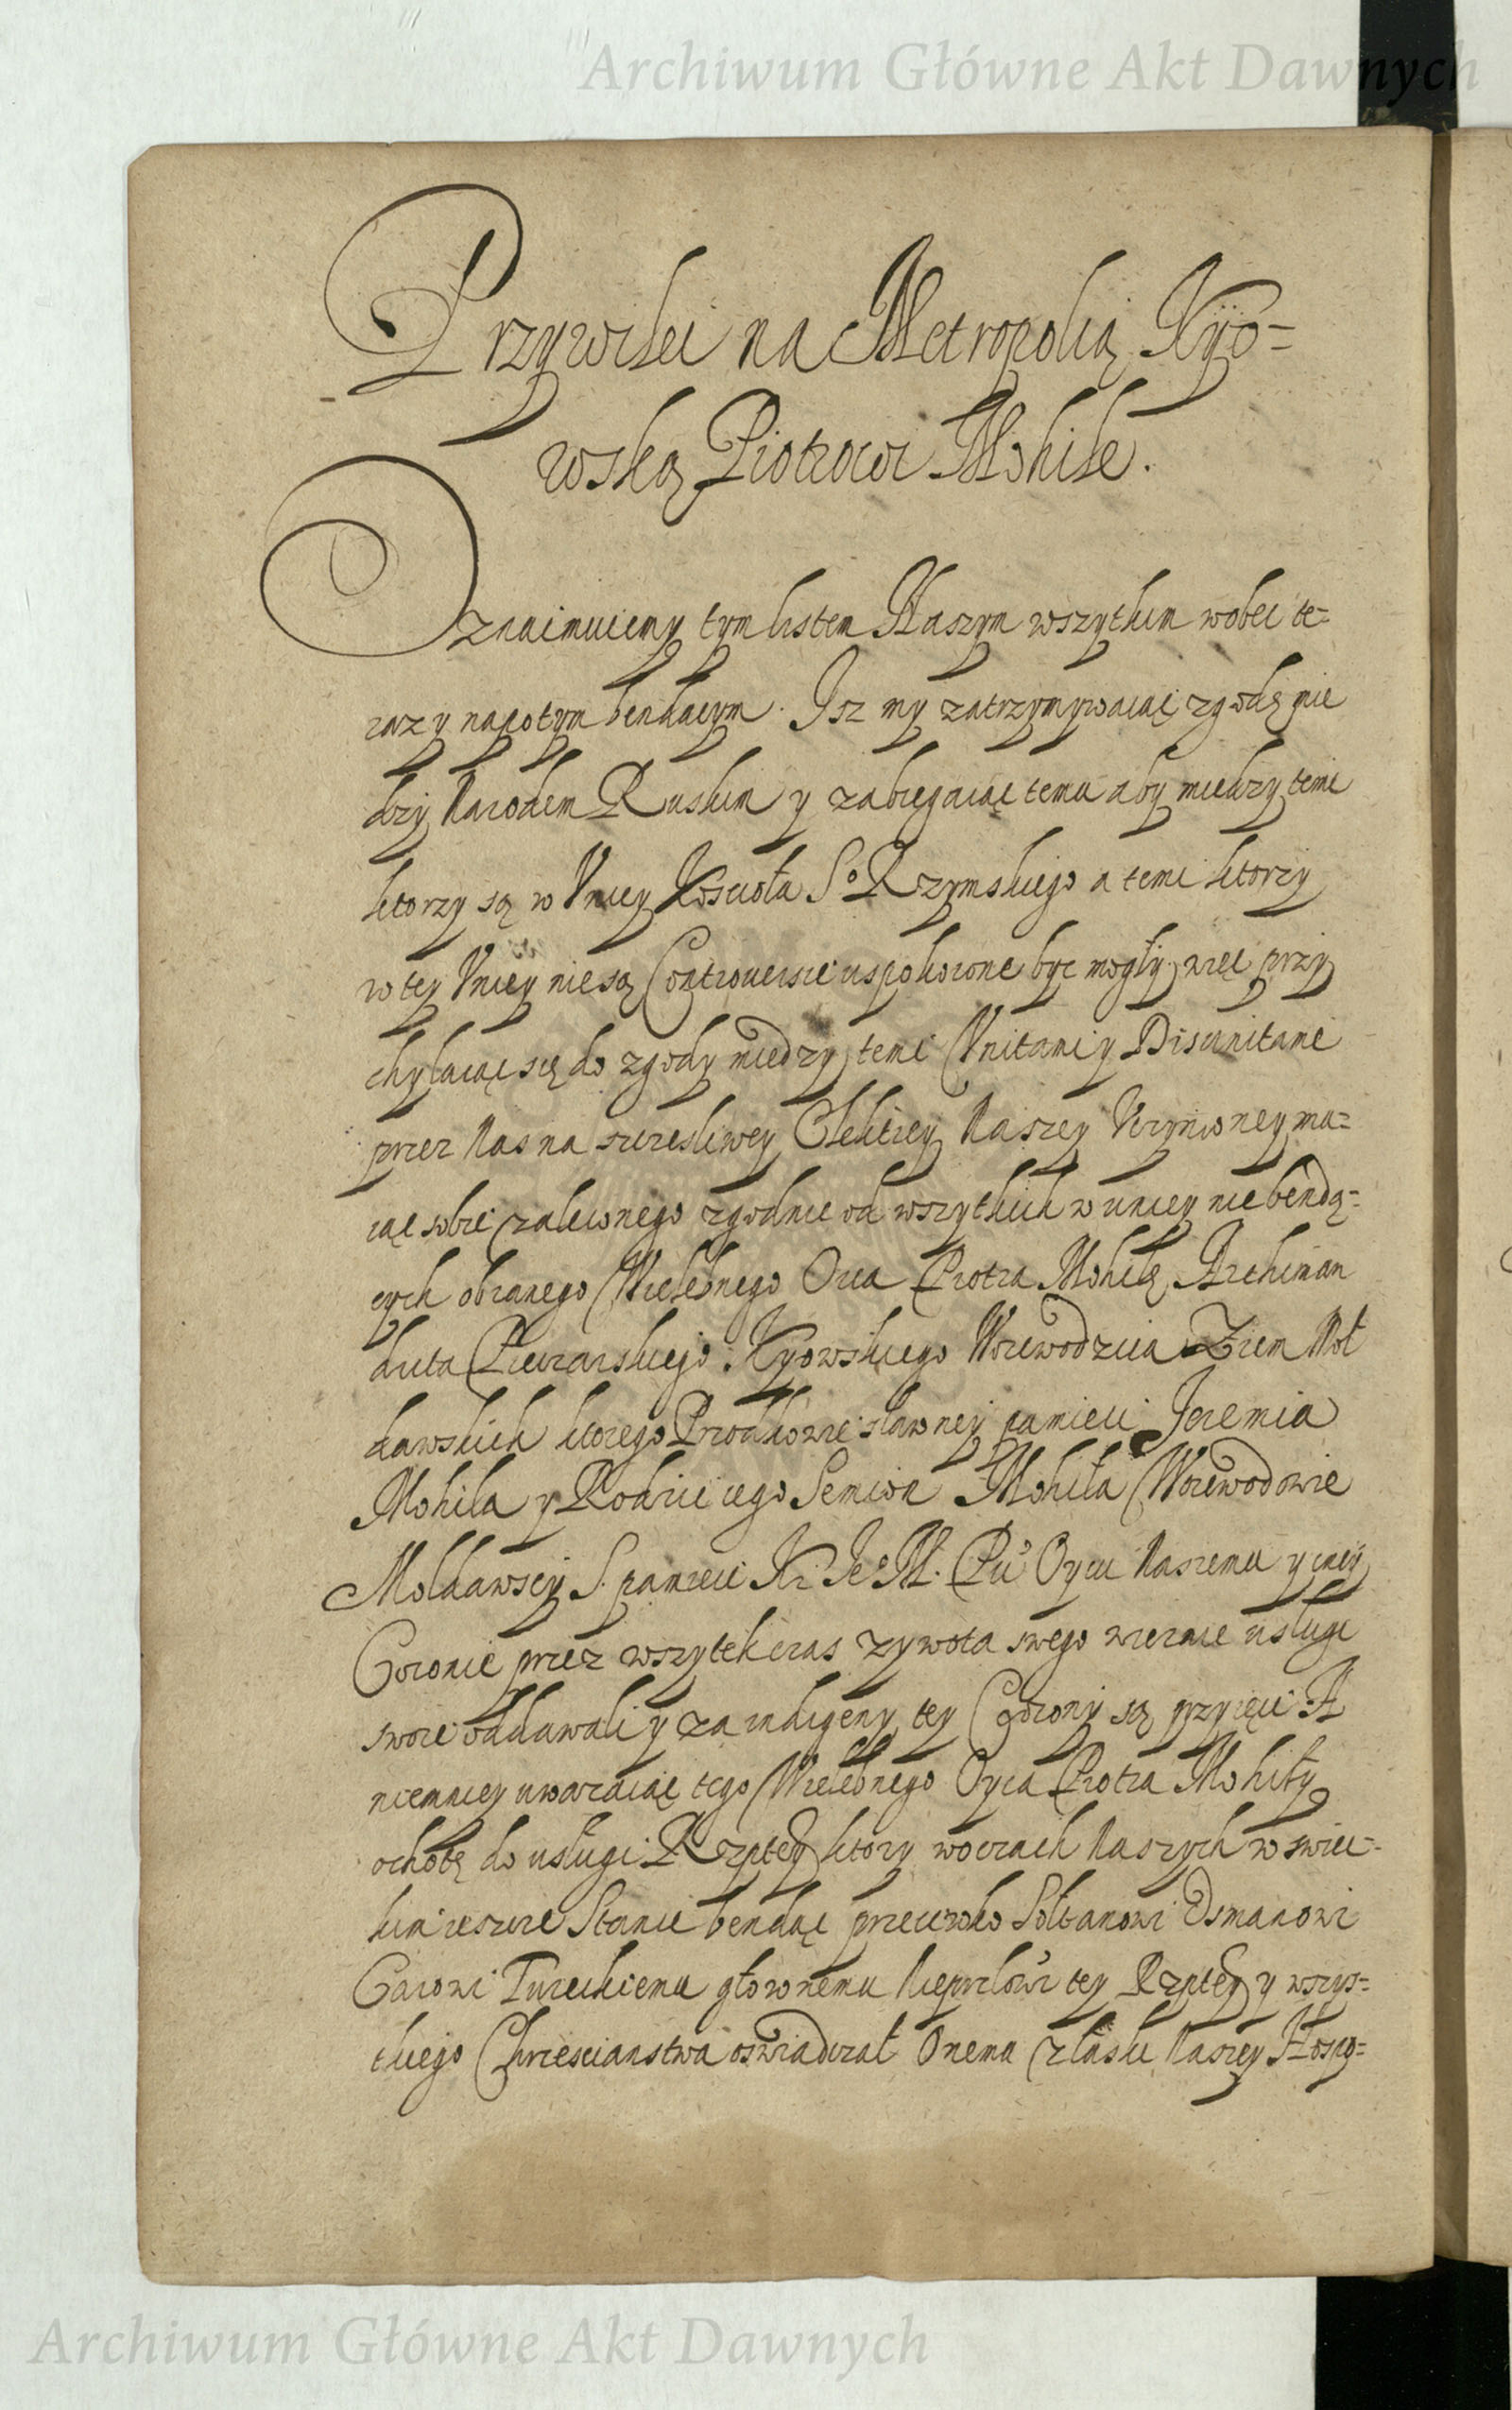 Archiwum Główne Akt Dawnych
Przywilei na Metropolią Kyio-
wską Piotrowi Mohile.
Oznaimuiemy tym listem Naszym wszytkim wobec te-
razy napotym bendącym. Isz my zatrzymywaiąc zgodę mie
dzy Narodem Ruskim y zabiegaiąc temu aby miedzy temi
ktorzy są w Uniey Koscioła So Rzymskiego a temi ktorzy
w tey Uniey nie są Controuersie uspokoione byc mogły, więc przy
chylaiąc się do zgody miedzy temi Unitami y Disunitami
przez Nas na szczesliwey Elekciey Naszey Uczynioney ma-
iąc sobie zaleconego zgodnie od wszytkich w uniey nie bendą-
cych obranego Wielebnego Oica Piotra Mohiłę Archiman
dritę Pieczarskiego Kyowskiego Woiewodzica Ziem Moł
dawskich ktorego Przodkowie sławney pamieci Jeremia
Mohila y Rodzic iego Semion Mohiła Woiewodowie
Moldawscy S. pamieci Kr Je°M. Pu Oycu Naszemu y tey
Coronie przez wszytek czas zywota swego wiernie usługi
swoie oddawali y za indigeny tey Corony są przyięci A
niemniey uwazaiąc tego Wielebnego Oyca Piotra Mohiły
ochotę do usługi Rzptey ktory w oczach Naszych w swiec-
kim ieszcze Stanie bendąc przeciwko Sołtanowi Osmanowi
Carowi Tureckiemu głownemu Nieprzlowi tey Rzptey y wszys-
tkiego Chrzescianstwa oswiadczał Onemu z łaski Naszey Hospo-
Archiwum Główne Akt Dawnych